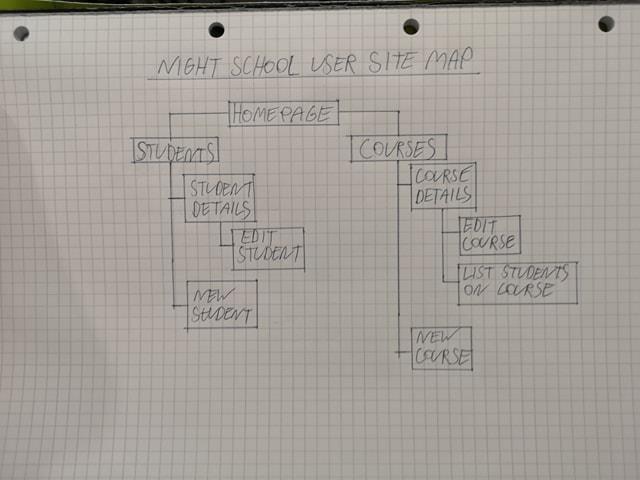 NIGHT SCHOOL USER SITE MAP
HOMEPAGE
STUDENTS
STUDENT
DETAILS
EDIT
STUDENT
NEW
STUDENT
COURSES
COURSE
DETAILS
EDIT
COURSE
LIST STUDENTS
ON COURSE
NEW
COURSE